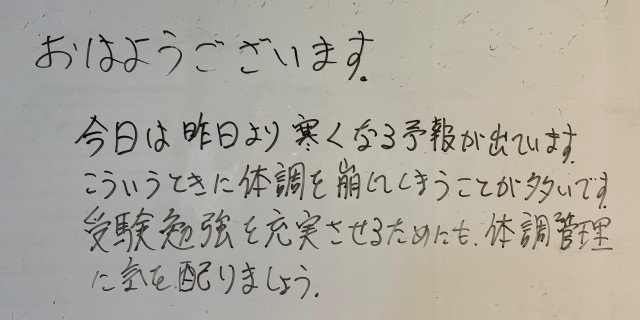 おはようございます.
今日は昨日より寒くなる予報が出ています.
こういうときに体調を崩してしまうことが多いです.
受験勉強を充実させるためにも、体調管理
に気を配りましょう.